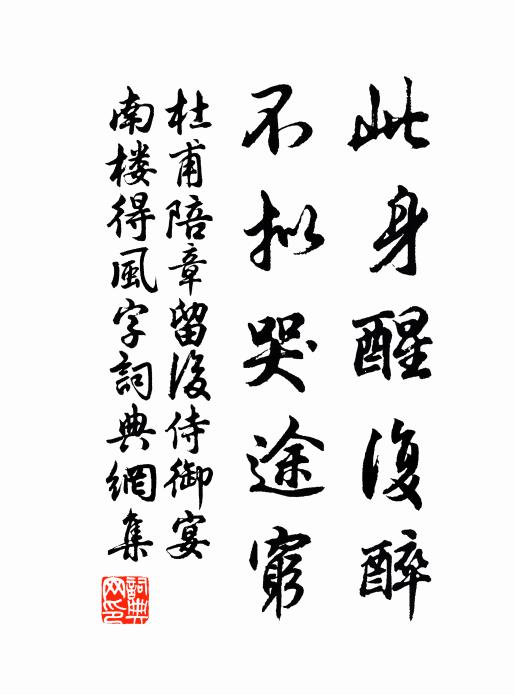 此身醒復醉
不拟哭途窮
杜甫陪章留後侍御宴
南楼得風字詞典網集
詞典網印